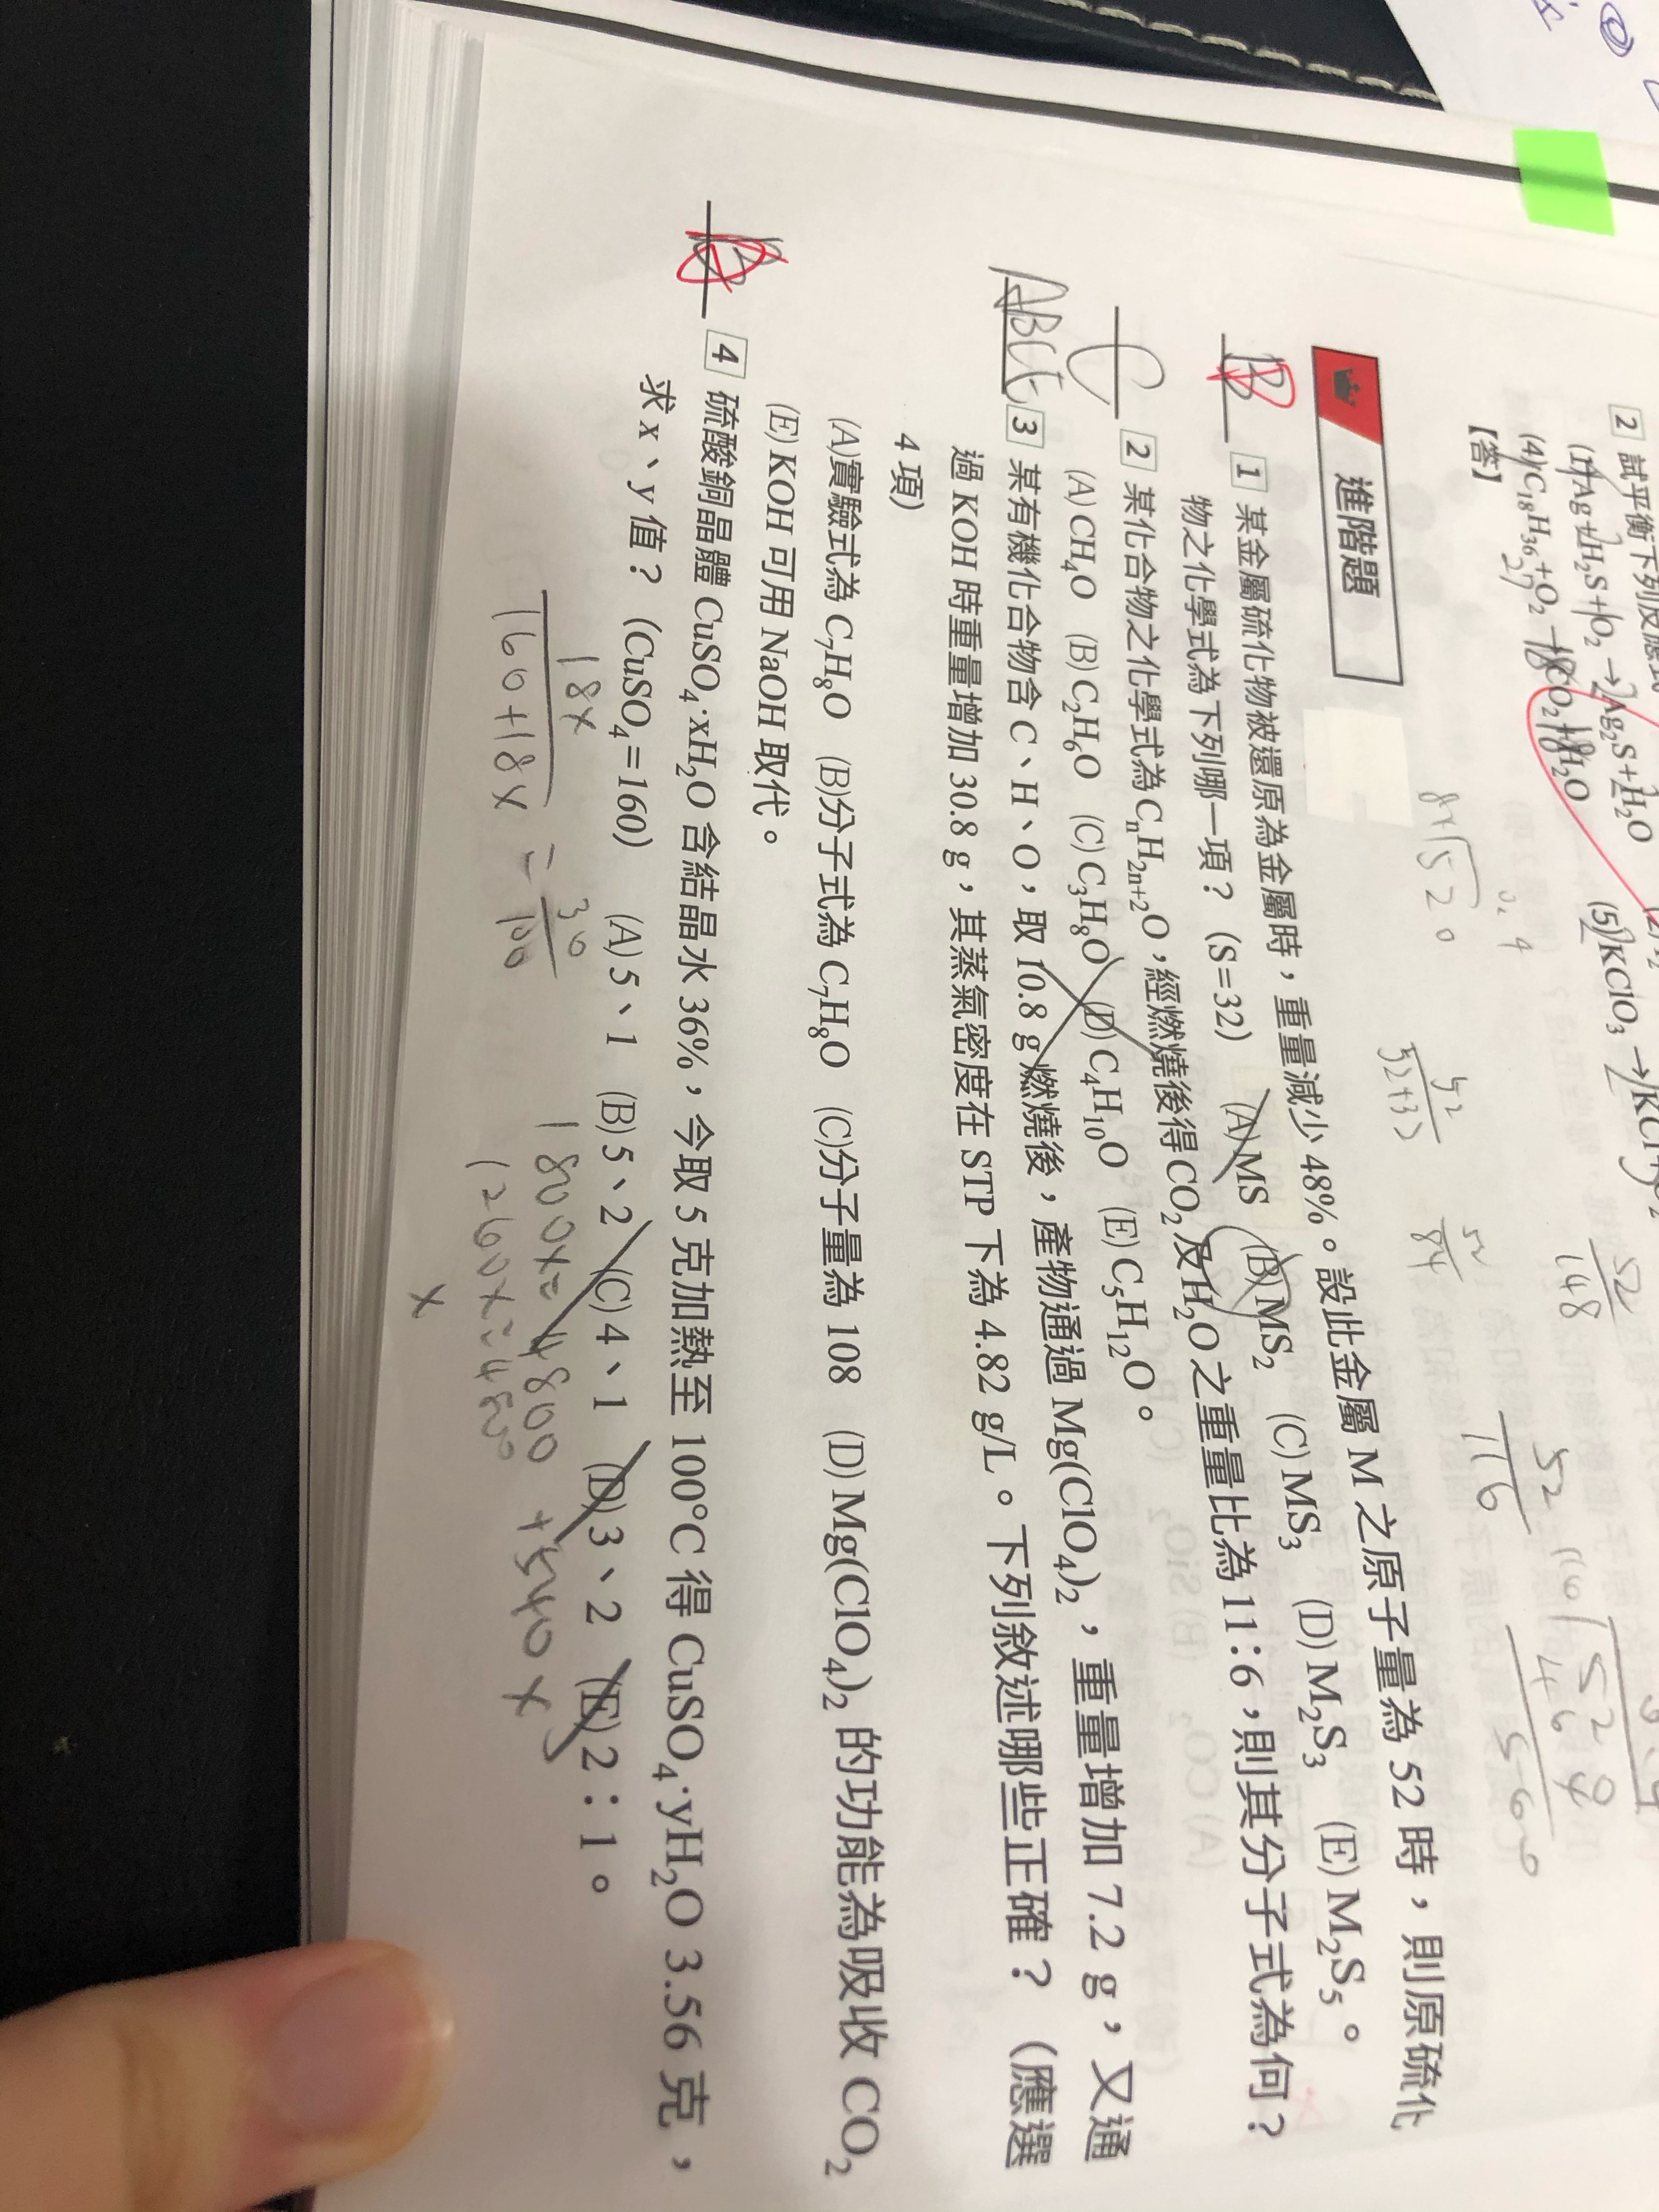 2 試平衡下列反應式
(1) Ag+H₂S+O₂→2Ag₂S+2H₂O
(5) KClO₃→KCl
(4) C₁₈H₃₆+O₂→18CO₂+18H₂O
27
【答】
進階題
B
1 某金屬硫化物被還原為金屬時，重量減少 48%。設此金屬 M 之原子量為 52 時，則原硫化
物之化學式為下列哪一項？（S=32） (A) MS (B) MS₂ (C) MS₃ (D) M₂S₃ (E) M₂S₅。
C
2 某化合物之化學式為 CₙH₂ₙ₊₂O，經燃燒後得 CO₂ 及 H₂O 之重量比為 11：6，則其分子式為何？
(A) CH₄O (B) C₂H₆O (C) C₃H₈O (D) C₄H₁₀O (E) C₅H₁₂O。
ABCE
3 某有機化合物含 C、H、O，取 10.8 g 燃燒後，產物通過 Mg(ClO₄)₂，重量增加 7.2 g，又通
過 KOH 時重量增加 30.8 g，其蒸氣密度在 STP 下為 4.82 g/L。下列敘述哪些正確？（應選
4 項）
(A)實驗式為 C₇H₈O (B)分子式為 C₇H₈O (C)分子量為 108 (D) Mg(ClO₄)₂ 的功能為吸收 CO₂
(E) KOH 可用 NaOH 取代。
B
4 硫酸銅晶體 CuSO₄·xH₂O 含結晶水 36%，今取 5 克加熱至 100°C 得 CuSO₄·yH₂O 3.56 克，
求 x、y 值？（CuSO₄=160） (A) 5、1 (B) 5、2 (C) 4、1 (D) 3、2 (E) 2：1。
18x
160+18x
=
30
100
1800x=4800+540x
1260x=4800
x